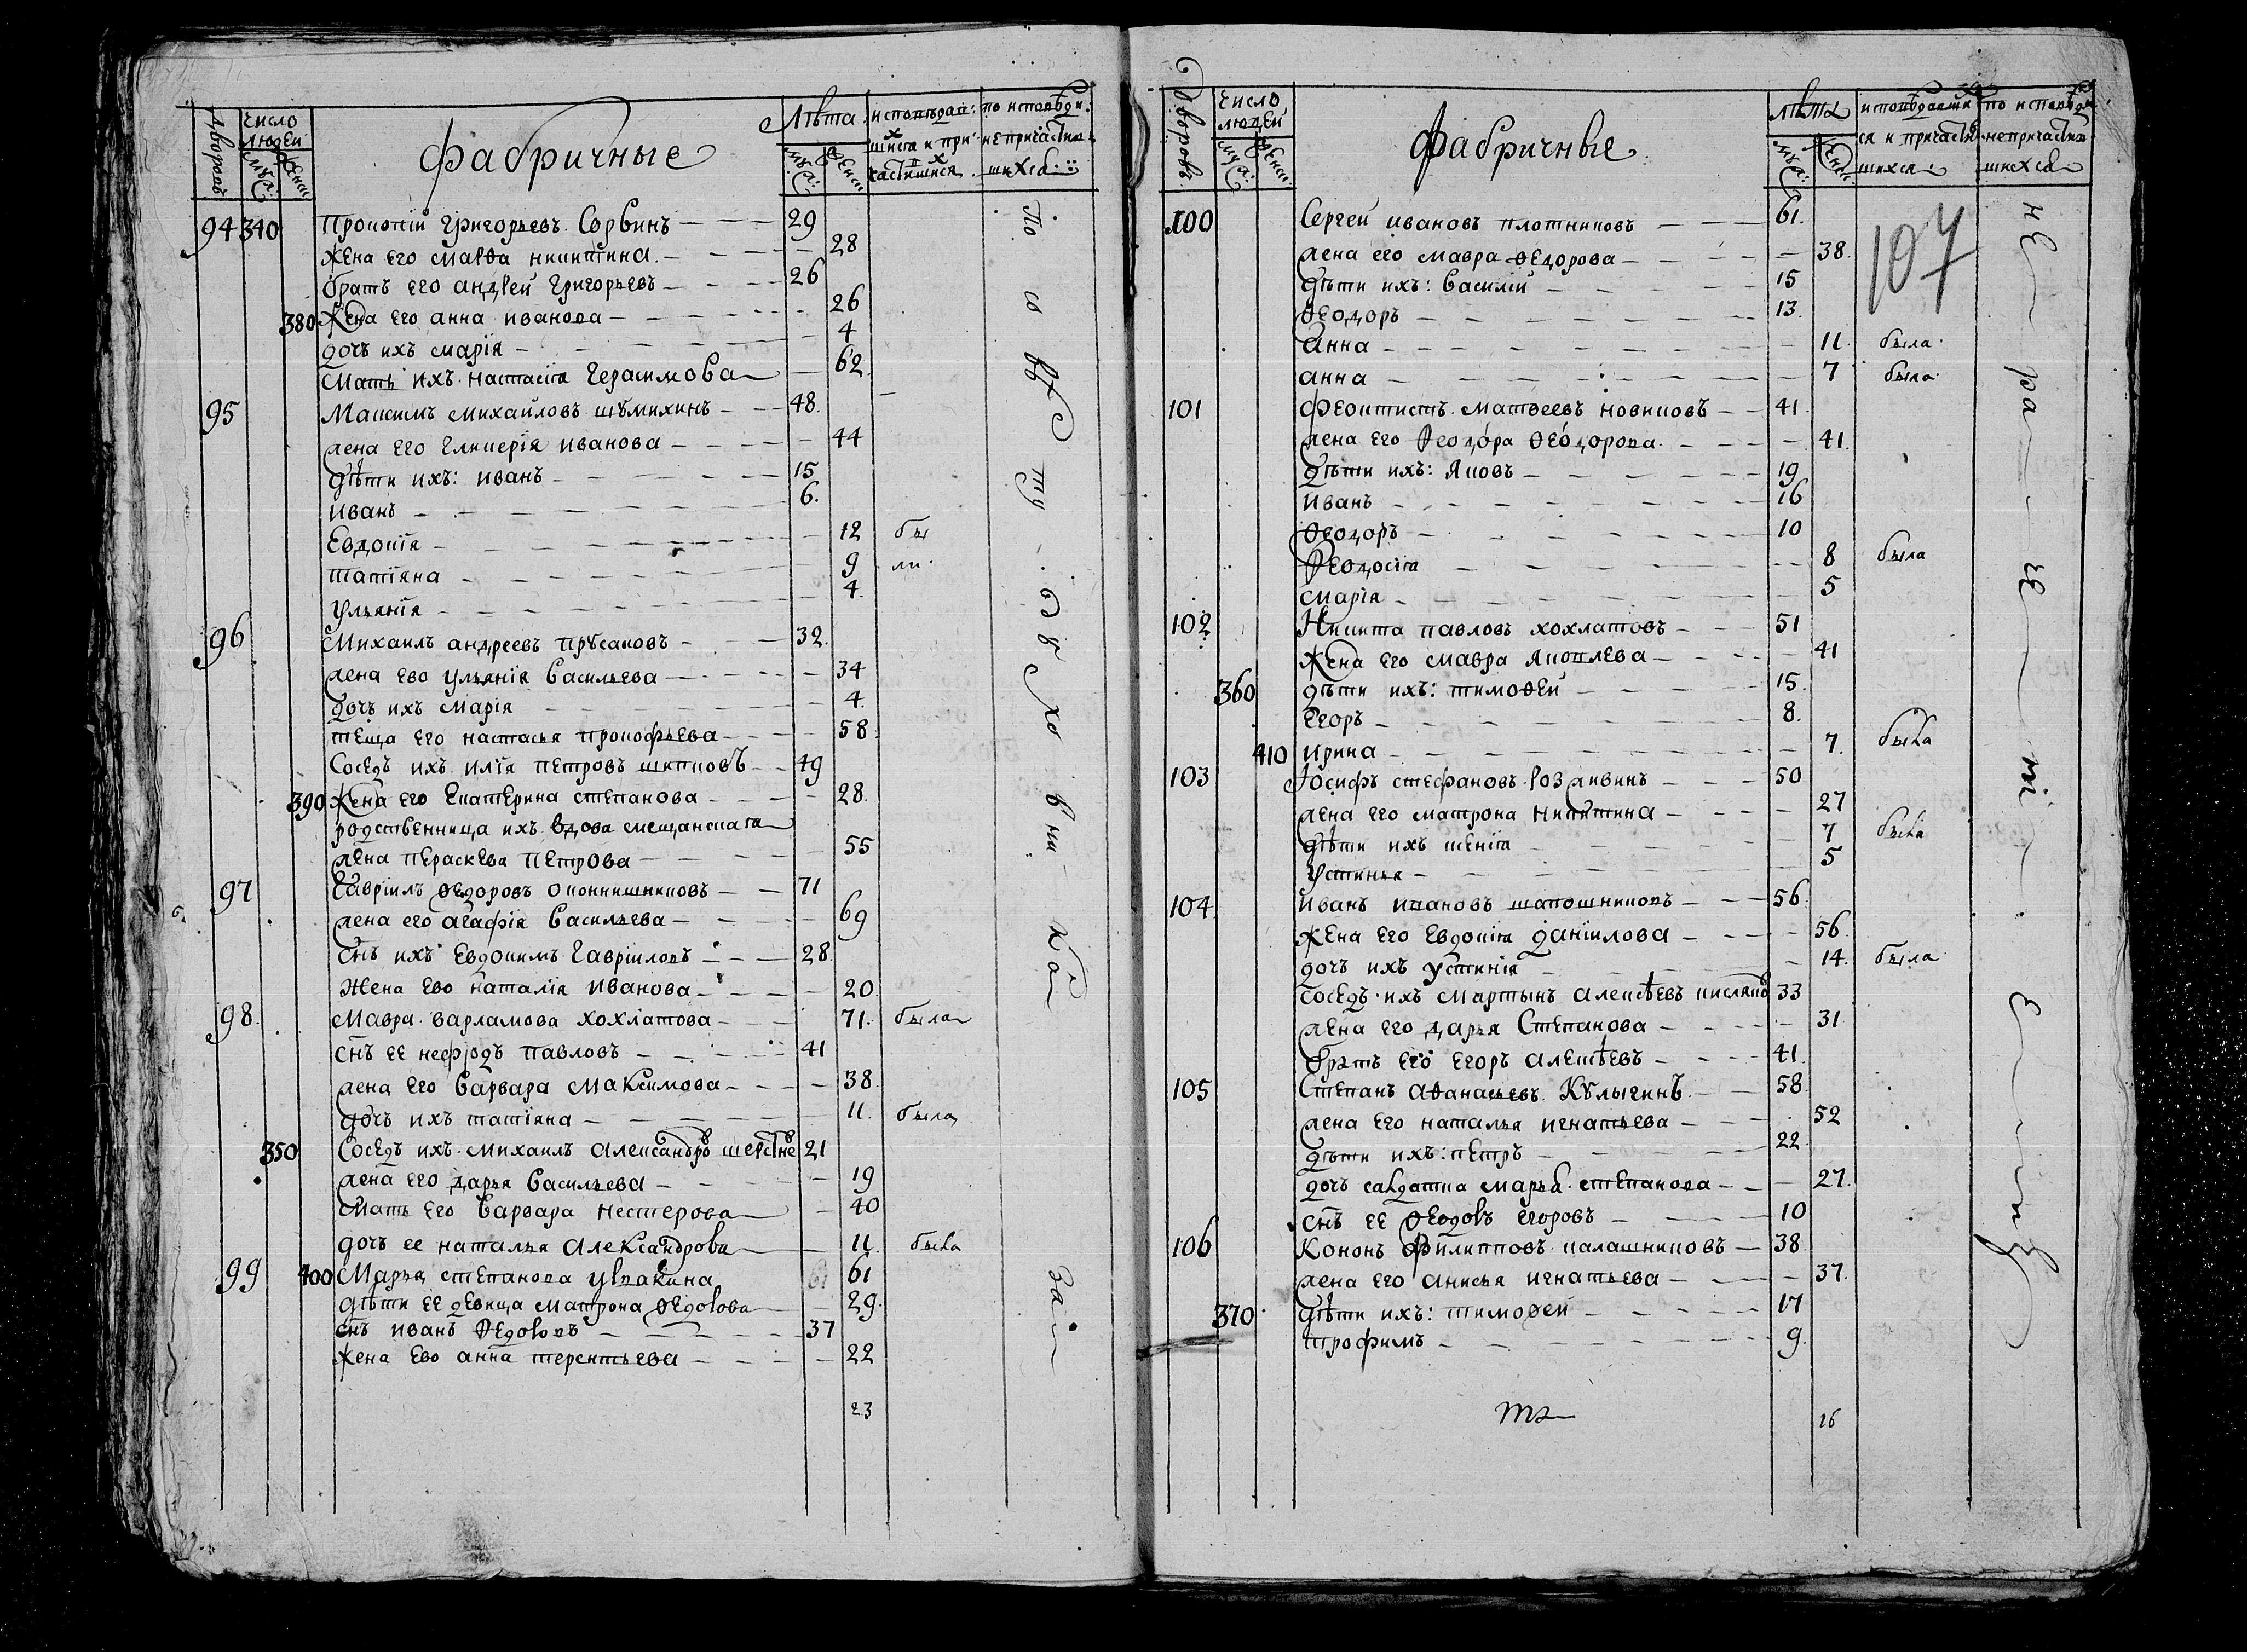 Дворовъ
число людей
муж:
женск:
Фабричные
Лѣта
муж:
женс:
исповѣдав:
шихся и при
частившихся
по исповѣди
непричастив
шихся
94 340 Прокопій Григорьевъ Сорвинъ 29
жена его марѳа никитина 28
братъ его андрей григорьевъ 26
380 Жена его анна иванова 26
дочь их марія 4
мать ихъ настасія Герасимова 62
95 Максимъ михайловъ шумихинъ 48
жена его гликерія иванова 44
дѣти ихъ: иванъ 15
иванъ 6
Евдокія 12 бы
татіяна 9 ли
ульянія 4
96 Михаилъ андреевъ прусаковъ 32
жена ево ульянія васильева 34
дочь ихъ марія 4
теща его настасья прокофьева 58
Соседъ ихъ илія петровъ шитиковъ 49
390 Жена его Екатерина степанова 28
родственница ихъ вдова мещанская
жена пераскева петрова 55
97 Гавріилъ ѳедоровъ оконнишниковъ 71
жена его агафія васильева 69
снъ ихъ Евдокимъ гавріиловъ 28
жена ево наталія иванова 20
98 мавра варламова хохлатова 71 была
снъ ее нефіодъ павловъ 41
жена его варвара максимова 38
дочь ихъ татіяна 11 была
350 Соседъ ихъ михаилъ александръ шерстне 21
жена его дарья васильева 19
мать его варвара нестерова 40
дочь ее наталья александрова 11 была
99 400 Марья степанова 61
дѣти ее девица матрона ѳедорова 29
снъ иванъ ѳедоровъ 37
жена ево анна терентьева 22
23
Дворовъ
число людей
муж:
женск:
Фабричные
лѣта
муж:
женс:
исповѣдавши
ся и причасти
шихся
по исповѣди
непричастив
шихся
107
100 Сергей ивановъ плотниковъ 61
жена его мавра ѳедорова 38
дѣти ихъ: василій 15
ѳеодоръ 13
анна 11 была
анна 7 была
101 Феоктистъ матвеевъ новиковъ 41
жена его ѳеодора ѳеодорова 41
дѣти ихъ: яковъ 19
иванъ 16
ѳеодоръ 10
ѳеодосія 8 была
марія 5
102 Никита павловъ хохлатовъ 51
жена его мавра яковлева 41
360 дѣти ихъ: тимоѳей 15
егоръ 8
410 ирина 7 была
103 Іосифъ стефановъ розживинъ 50
жена его матрона никитина 27
дѣти ихъ 7 была
устинья 5
104 Иванъ ивановъ шапошниковъ 56
жена его Евдокія даніилова 56
дочь ихъ устинія 14 была
соседъ ихъ мартынъ алексѣевъ 33
жена его дарья степанова 31
братъ его егоръ алексѣевъ 41
105 Степанъ аѳанасьевъ Кулыгинъ 58
жена его наталья игнатьева 52
дѣти ихъ: петръ 22
дочь салдатка марья степанова 27
снъ ее ѳеодоръ егоровъ 10
106 Кононъ филипповъ калашниковъ 38
жена его анисья игнатьева 37
370 дѣти ихъ: тимоѳей 17
трофимъ 9
16